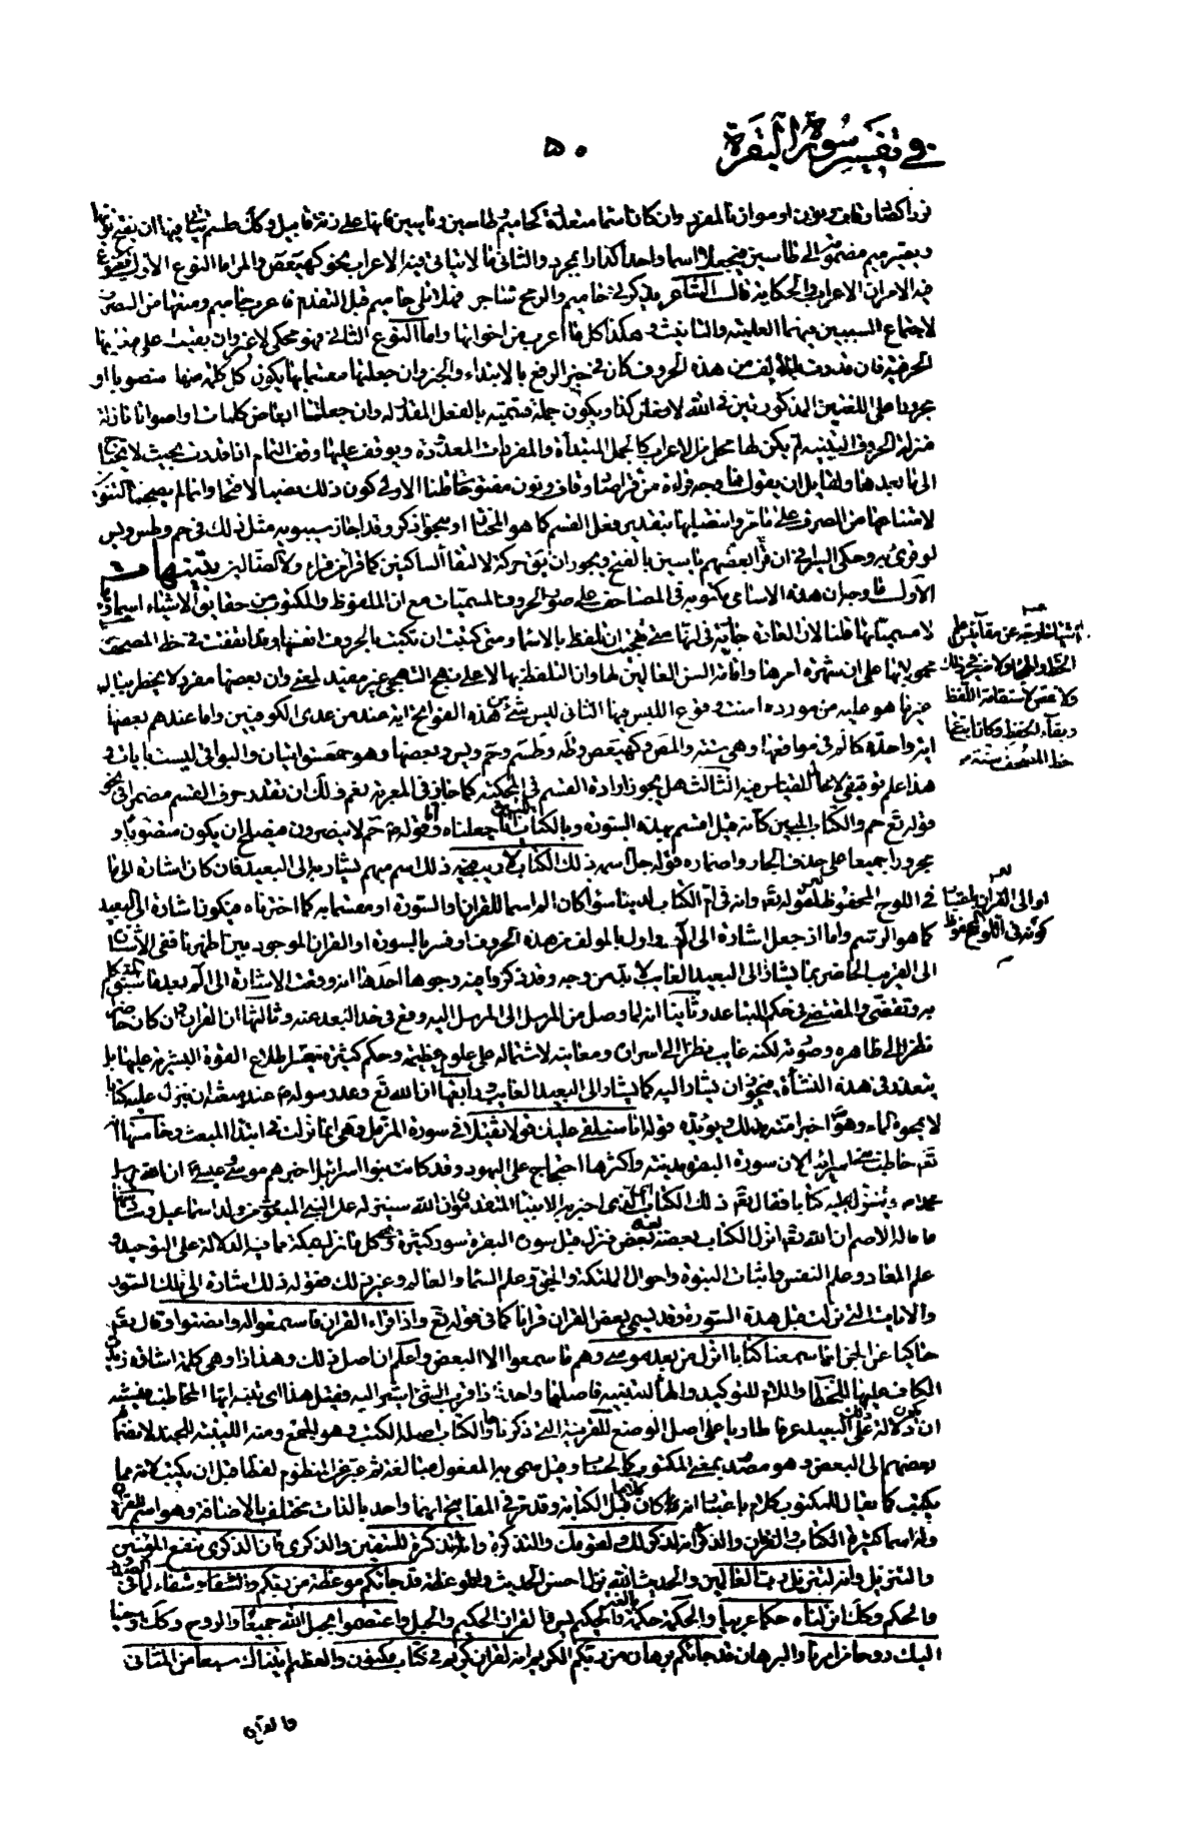 في تفسير سورة البقرة
٥٠
فرداكصاد وقاف ونون او موازنا لمفرد وان كان اسما متعددة كحاميم وطاسين وياسين فانها على زنة قابيل وكذلك طسم يتأتى فيها ان يفتح نونها
ويصير ميم مضمومة الى طاسين فيجعلا اسما واحدا كدارا بجرد والثاني ما لا يتأتى فيه الاعراب نحو كهيعص والمرا ما النوع الاول فيجوز
فيه الامران الاعراب والحكاية قال الشاعر يذكرني حاميم والرمح شاجر فهلا تلي حاميم قبل التقدم فاعرب حاميم ومنعها من الصرف
لاجتماع السببين فيهما العلمية والتانيث وهكذا كل ما اعرب من اخواتها واما النوع الثاني فهو محكي لا غير وان بقيت على معانيها
الحرفية فان قدرت بالمؤلف من هذه الحروف كان في حيز الرفع بالابتداء والخبر وان جعلتها مقسما بها يكون كل كلمة منها منصوبا او
مجرورا على اللغتين المذكورتين في الله لافعلن كذا ويكون جملة قسمية بالفعل المقدر له وان جعلتها ابعاض كلمات او اصواتا نازلة
منزلة حروف التنبيه لم يكن لها محل من الاعراب كالجمل المبتدأة والمفردات المعدودة ويوقف عليها وقف التمام اذا قدرت بحيث لا تحتاج
الى ما بعدها ولقائل ان يقول فما وجه قراءة من قرا ص وقاف ونون مفتوحات قلنا الاولى كون ذلك نصبا لا فتحا وانما لم يصحبها التنوين
لامتناعها من الصرف على ما مر وانتصابها بتقدير فعل القسم كما هو المختار او بنحو اذكر وقد اجاز سيبويه مثل ذلك في حم وطس ويس
لو قرئ به وحكى السيرافي ان قرأ بعضهم ياسين بالفتح ويجوز ان يق حركة لالتقاء الساكنين كما قرأ من قراء ولا الضالين تنبيهات
الاول ما وجه ان هذه الاسامي مكتوبة في المصاحف على صور الحروف المسميات مع ان الملفوظ والمكتوب من حقايق الاشياء اسماؤها
لا مسمياتها قلنا لان العادة جارية في انها متى تهجيت ان تلفظ بالاسماء ومتى كتبت ان تكتب بالحروف انفسها وقد اتفقت في خط المصحف
محمولة بها على ان شهرة امرها واقامة السن القائلين لها وان التلفظ بها لا على نهج التهجي غير مفيد لمعنى وان بعضها مفرد لا يخطر ببال
غيرها هو عليه من مورده امنت وقوع اللبس فيها الثاني ليس شيء من هذه الفواتح اية عند من عدى الكوفيين واما عندهم بعضها
اية واحدة كالم في مواقعها وهي ستة والمص وكهيعص وطه وطسم وحم ويس وبعضها وهو حمعسق ايتان والبواقي ليست بايات و
هذا علم توقيفي لا مجال للقياس فيه الثالث هل يجوز ارادة القسم في المحكية كما جاز في المعربة نعم ولك ان تقدر حرف القسم مضمرا في نحو
قوله تع حم والكتاب المبين كانه قيل اقسم بهذه السورة وبالكتاب المبين انا جعلناه وقوله ع حم لا ينصرون فيصلح ان يكون منصوبا و
مجرورا جميعا على حذف الجار واضماره قوله جل اسمه ذلك الكتاب لا ريب فيه ذلك اسم مبهم يشار به الى البعيد فان كان اشارة الى ما
في اللوح المحفوظ لقوله تع وانه في ام الكتاب لدينا سواء كان الم اسما للقران والسورة او مقسما به كما اخترناه فيكون اشارة الى البعيد
كما هو الرسم واما اذ جعل اشارة الى الم واول بالمؤلف من هذه الحروف او فسر بالسورة او القران الموجود بين اظهرنا ففي الاشارة
الى القريب الحاضر بما يشار الى البعيد الغايب لابد من وجه وقد ذكروا فيه وجوها احدها انه وقعت الاشارة الى الم بعد ما سبق تكلم
به وتقضى والمقتضى في حكم المتباعد وثانيها انه لما وصل من المرسل الى المرسل اليه وقع في حد البعد عنه وثالثها ان القران وان كان حاضرا
نظرا الى ظاهره وصورته لكنه غايب نظرا الى اسراره ومعانيه لاشتماله على علوم عظيمة وحكم كثيرة يتعسر اطلاع القوة البشرية عليها بل
يتعذر في هذه النشأة فيجوز ان يشار اليه كما يشار الى البعيد الغايب ورابعها ان الله تع وعد رسوله ص عند مبعثه ان ينزل عليه كتابا
لا يمحوه الماء وهو ص اخبر امته بذلك ويؤيده قوله انا سنلقي عليك قولا ثقيلا في سورة المزمل وهي انما نزلت في ابتداء المبعث وخامسها انه
تع خاطب بني اسرائيل لان سورة البقرة مدنية واكثرها احتجاج على اليهود وقد كانت بنوا اسرائيل اخبرهم موسى وعيسى ع ان الله يرسل
محمدا ص وينزل عليه كتابا فقال تع ذلك الكتاب الذي اخبر به الانبياء المتقدمون ان الله سينزله على النبي المبعوث من ولد اسماعيل وسادسها
ما قاله الاصم ان الله تع انزل الكتاب بعضه بعد بعض فنزل قبل سورة البقرة سور كثيرة وهي كل ما نزل بمكة مما فيه الدلالة على التوحيد و
علم المعاد وعلم النفس واثبات النبوة واحوال الملائكة والجن وعلم السماء والعالم وغير ذلك فقوله ذلك اشارة الى تلك السور
والايات التي نزلت قبل هذه السورة وقد يسمى بعض القران قرانا كما في قوله تع واذا قراء القران فاستمعوا له وانصتوا وقال تع
حاكيا عن الجن انا سمعنا كتابا انزل من بعد موسى وهم ما سمعوا الا البعض واعلم ان اصل ذلك وهذا ذا وهي كلمة اشارة زيدت
الكاف عليها للخطاب واللام للتوكيد والهاء للتنبيه فاصلهما واحد ذا قرب الشيء اشير اليه فقيل هذا اي تنبه ايها المخاطب فيشبه
ان يكون دلالة ذلك على البعيد عرفا طاريا على اصل الوضع للقرينة التي ذكرناها والكتاب اصله الكتب وهو الجمع ومنه الكتيبة للجند لانضمام
بعضهم الى البعض وهو مصدر بمعنى المكتوب كالحساب وقيل سمي به المفعول مبالغة ثم عبر عن المنظوم لفظا قبل ان يكتب لانه مما
يكتب كما يقال للمكتوب كلام باعتبار انه كان كلاما قبل الكتابة وقد مر في المفاتيح انهما واحد بالذات مختلف بالاضافة وهو اسم للقران
وله اسماء كثيرة الكتاب والقران والذكر انه لذكر لك ولقومك والتذكرة وانه لتذكرة للمتقين والذكرى فان الذكرى تنفع المؤمنين
والتنزيل وانه لتنزيل رب العالمين والحديث الله نزل احسن الحديث والموعظة قد جائكم موعظة من ربكم والشفاء وشفاء لما في الصدور
والحكم وكذلك انزلناه حكما عربيا والحكمة حكمة بالغة والحكيم يس والقران الحكيم والحبل واعتصموا بحبل الله جميعا والروح وكذلك اوحينا
اليك روحا من امرنا والبرهان قد جائكم برهان من ربكم الكريم انه لقران كريم في كتاب مكنون والعظيم اتيناك سبعا من المثاني
والقران
اشياء خارجة عن مقائيس علم
الخط والهجاء ولا ضير في ذلك
ولا نقص لاستقامة اللفظ
وبقاء الحفظ وكان اتباع
خط المصحف سنة
او الى القران باعتبار
كونه في اللوح المحفوظ